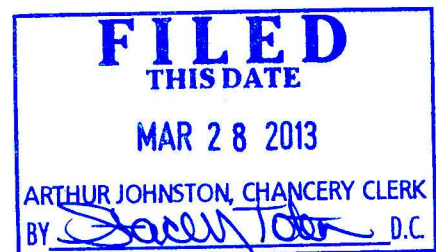 FILED
THIS DATE
MAR 28 2013
ARTHUR JOHNSTON, CHANCERY CLERK
BY Stacey Toten D.C.